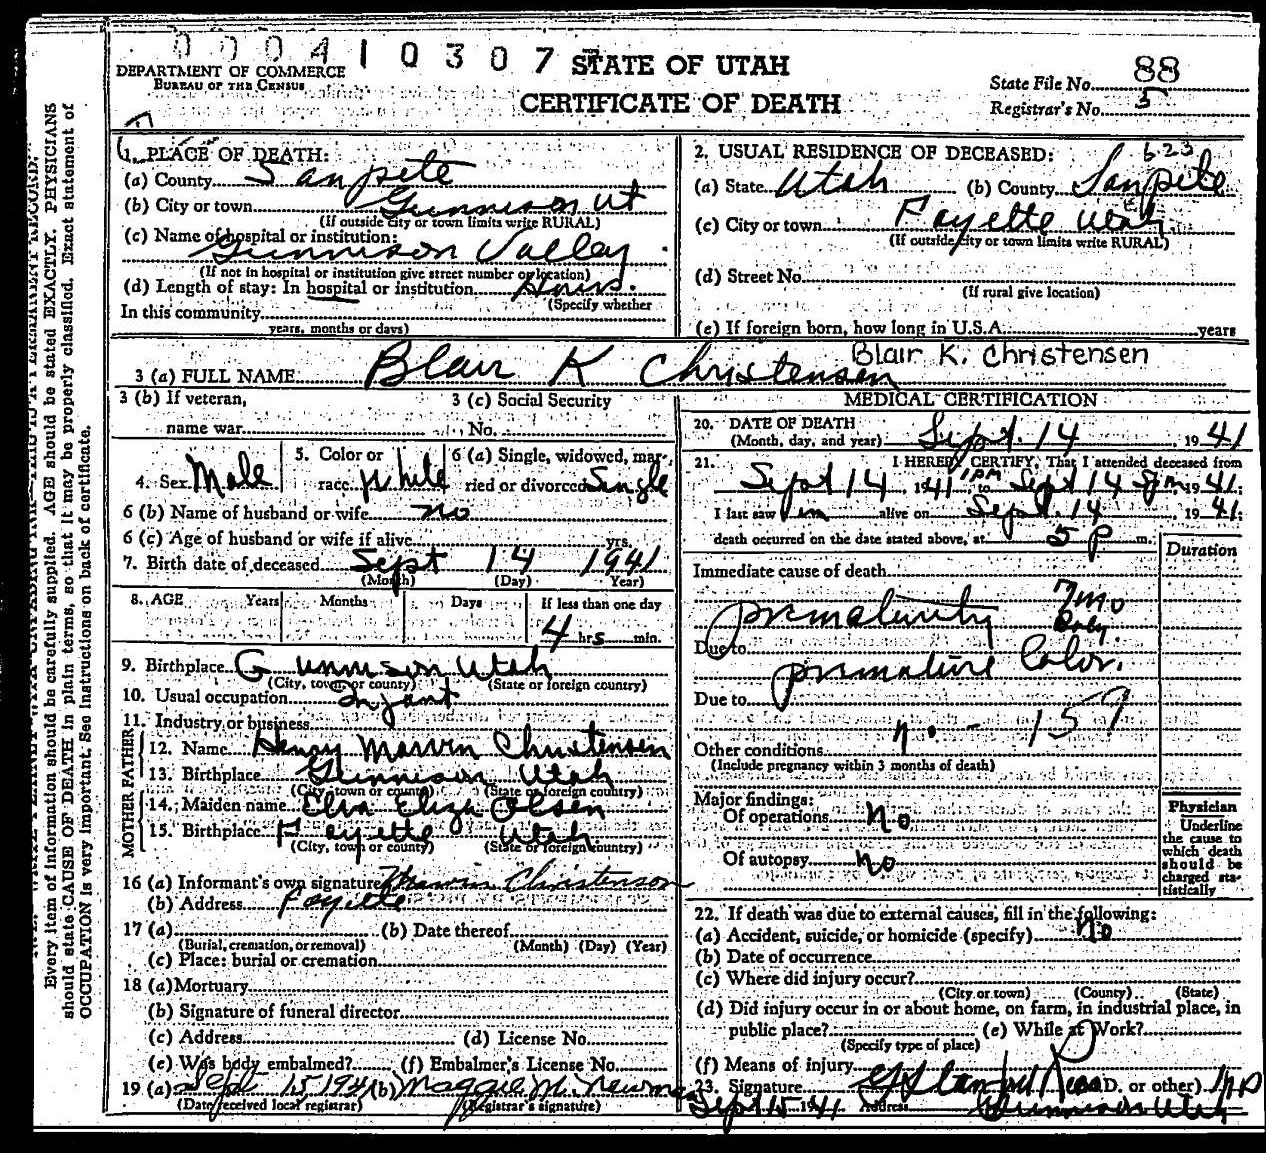 00041 0307
STATE OF UTAH
CERTIFICATE OF DEATH
DEPARTMENT OF COMMERCE
BUREAU OF THE CENSUS
State File No. 88
Registrar's No. 5
Every item of information should be carefully supplied. AGE should be stated EXACTLY. PHYSICIANS
should state CAUSE OF DEATH in plain terms, so that it may be properly classified. Exact statement of
OCCUPATION is very important. See instructions on back of certificate.
1. PLACE OF DEATH:
(a) County Sanpete
(b) City or town Gunnison Ut
(If outside city or town limits write RURAL)
(c) Name of hospital or institution:
Gunnison Valley
(If not in hospital or institution give street number or location)
(d) Length of stay: In hospital or institution
(Specify whether
In this community
years, months or days)
2. USUAL RESIDENCE OF DECEASED: 623
(a) State Utah (b) County Sanpete
(c) City or town Fayette Utah
(If outside city or town limits write RURAL)
(d) Street No.
(If rural give location)
(e) If foreign born, how long in U.S.A. years
3 (a) FULL NAME Blair K Christensen Blair K. Christensen
3 (b) If veteran, name war
3 (c) Social Security No.
4. Sex Male
5. Color or race White
6 (a) Single, widowed, married or divorced Single
6 (b) Name of husband or wife no
6 (c) Age of husband or wife if alive yrs.
7. Birth date of deceased Sept 14 1941
(Month) (Day) (Year)
8. AGE Years Months Days If less than one day
4 hrs min.
9. Birthplace Gunnison Utah
(City, town, or county) (State or foreign country)
10. Usual occupation Infant
11. Industry or business
FATHER
12. Name Henry Marvin Christensen
13. Birthplace Gunnison Utah
(City, town or county) (State or foreign country)
MOTHER
14. Maiden name Elva Eliza Olsen
15. Birthplace Fayette Utah
(City, town or county) (State or foreign country)
16 (a) Informant's own signature Marvin Christenson
(b) Address Fayette
17 (a) (b) Date thereof
(Burial, cremation, or removal) (Month) (Day) (Year)
(c) Place: burial or cremation
18 (a) Mortuary
(b) Signature of funeral director
(c) Address (d) License No.
(e) Was body embalmed? (f) Embalmer's License No.
19 (a) Sept 15 1941 (b) Maggie M.
(Date received local registrar) (Registrar's signature)
MEDICAL CERTIFICATION
20. DATE OF DEATH
(Month, day, and year) Sept. 14, 1941
21. I HEREBY CERTIFY, That I attended deceased from
Sept 14 1941 1 PM to Sept 14 5 pm, 1941;
I last saw im alive on Sept. 14 1941;
death occurred on the date stated above, at 5 P m.
Duration
Immediate cause of death
prematurity 7 mo
Due to
premature labor.
Due to
159
Other conditions no
(Include pregnancy within 3 months of death)
Major findings:
Of operations no
Of autopsy no
Physician
Underline
the cause to
which death
should be
charged sta-
tistically
22. If death was due to external causes, fill in the following:
(a) Accident, suicide, or homicide (specify) no
(b) Date of occurrence
(c) Where did injury occur?
(City or town) (County) (State)
(d) Did injury occur in or about home, on farm, in industrial place, in
public place? (e) While at Work?
(Specify type of place)
(f) Means of injury
23. Signature (M.D. or other) MD
Sept 15 1941 Address Gunnison Utah